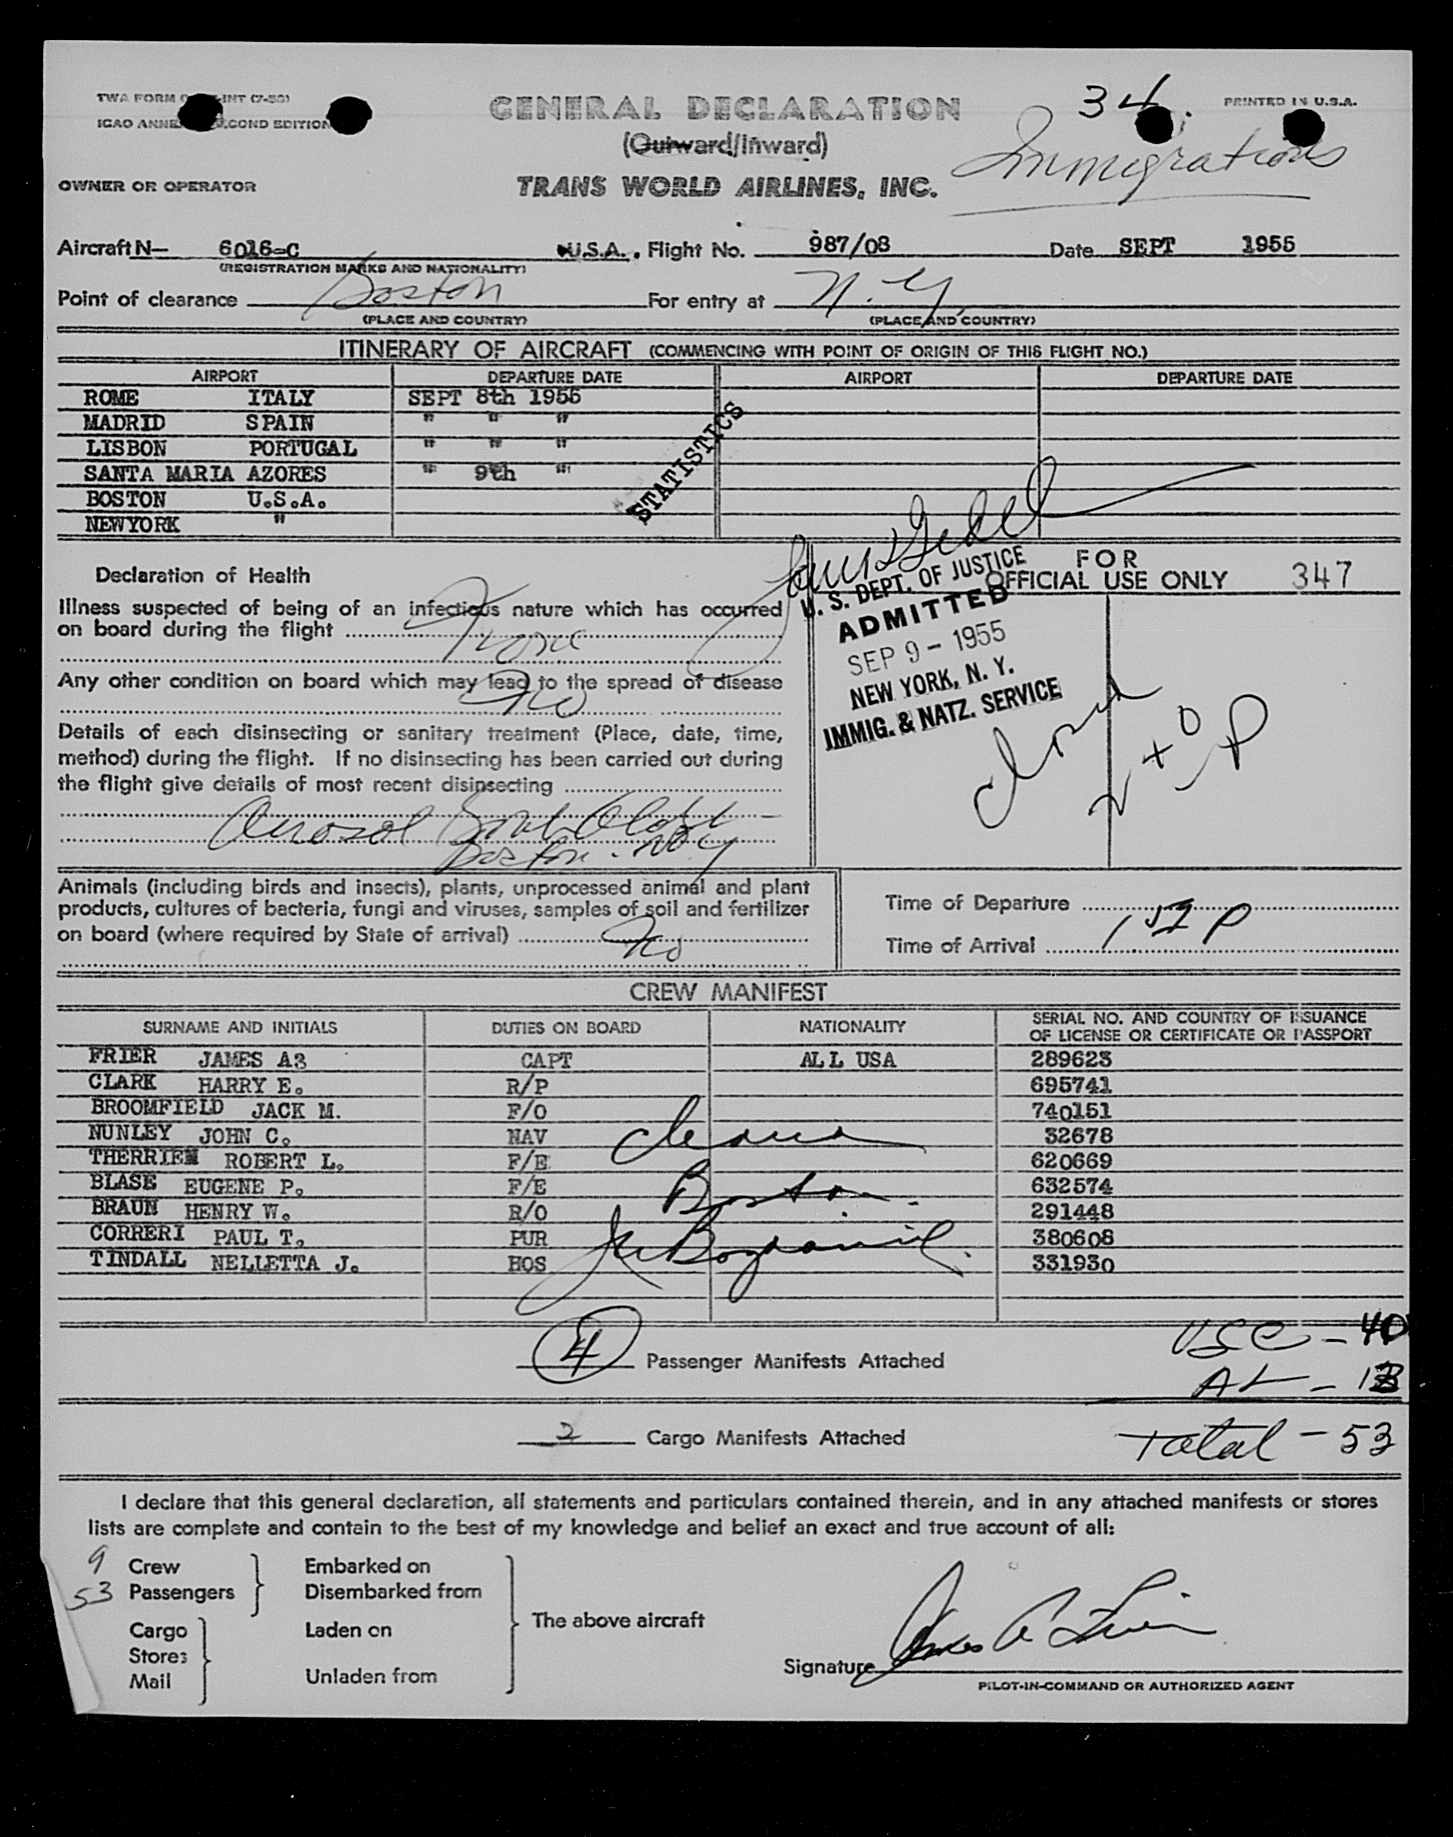 34.
PRINTED IN U.S.A.
TWA FORM
ICAO ANNE SECOND EDITION
GENERAL DECLARATION
Immigrations
(Outward/Inward)
OWNER OR OPERATOR
TRANS WORLD AIRLINES, INC.
Aircraft N— 6016-C U.S.A. Flight No. 987/08 Date SEPT 1955
(REGISTRATION MARKS AND NATIONALITY)
Point of clearance Boston For entry at N.Y.
(PLACE AND COUNTRY) (PLACE AND COUNTRY)
ITINERARY OF AIRCRAFT (COMMENCING WITH POINT OF ORIGIN OF THIS FLIGHT NO.)
AIRPORT DEPARTURE DATE AIRPORT DEPARTURE DATE
ROME ITALY SEPT 8th 1955
MADRID SPAIN " " "
LISBON PORTUGAL " " "
SANTA MARIA AZORES " 9th "
BOSTON U.S.A.
NEWYORK "
STATISTICS
Declaration of Health
Illness suspected of being of an infectious nature which has occurred
on board during the flight None
Any other condition on board which may lead to the spread of disease
No
Details of each disinsecting or sanitary treatment (Place, date, time,
method) during the flight. If no disinsecting has been carried out during
the flight give details of most recent disinsecting
Aerosol Bomb
Boston - N Y
FOR
OFFICIAL USE ONLY 347
U. S. DEPT. OF JUSTICE
ADMITTED
SEP 9 - 1955
NEW YORK, N. Y.
IMMIG. & NATZ. SERVICE
Animals (including birds and insects), plants, unprocessed animal and plant
products, cultures of bacteria, fungi and viruses, samples of soil and fertilizer
on board (where required by State of arrival) No
Time of Departure
Time of Arrival 1 52 P
CREW MANIFEST
SURNAME AND INITIALS DUTIES ON BOARD NATIONALITY SERIAL NO. AND COUNTRY OF ISSUANCE
OF LICENSE OR CERTIFICATE OR PASSPORT
FRIER JAMES A3 CAPT ALL USA 289623
CLARK HARRY E. R/P 695741
BROOMFIELD JACK M. F/O 740151
NUNLEY JOHN C. NAV 32678
THERRIEN ROBERT L. F/E 620669
BLASE EUGENE P. F/E 632574
BRAUN HENRY W. R/O 291448
CORRERI PAUL T. PUR 380608
TINDALL NELLETTA J. HOS 331930
Boston
4 Passenger Manifests Attached
USC - 40
AL - 13
2 Cargo Manifests Attached
Total - 53
I declare that this general declaration, all statements and particulars contained therein, and in any attached manifests or stores
lists are complete and contain to the best of my knowledge and belief an exact and true account of all:
9 Crew
53 Passengers
Embarked on
Disembarked from
Cargo
Stores
Mail
Laden on
Unladen from
The above aircraft
Signature
PILOT-IN-COMMAND OR AUTHORIZED AGENT